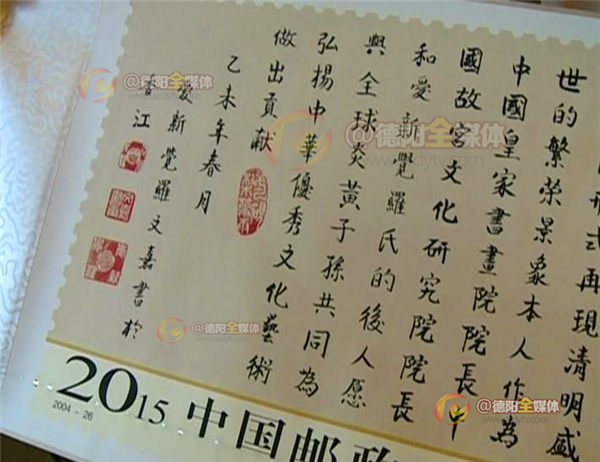 形式再現清明盛
世的繁荣景象本人作為
中國皇家書畫院院長中
國故宮文化研究院院長
和愛新覺羅氏的後人愿
與全球炎黃子孫共同為
弘揚中華優秀文化藝術
做出貢獻
乙未年春月
愛新覺羅文嘉書於
香江
2015 中国邮政
2004 - 26
@德阳全媒体
@德阳全媒体
@德阳全媒体
@德阳全媒体